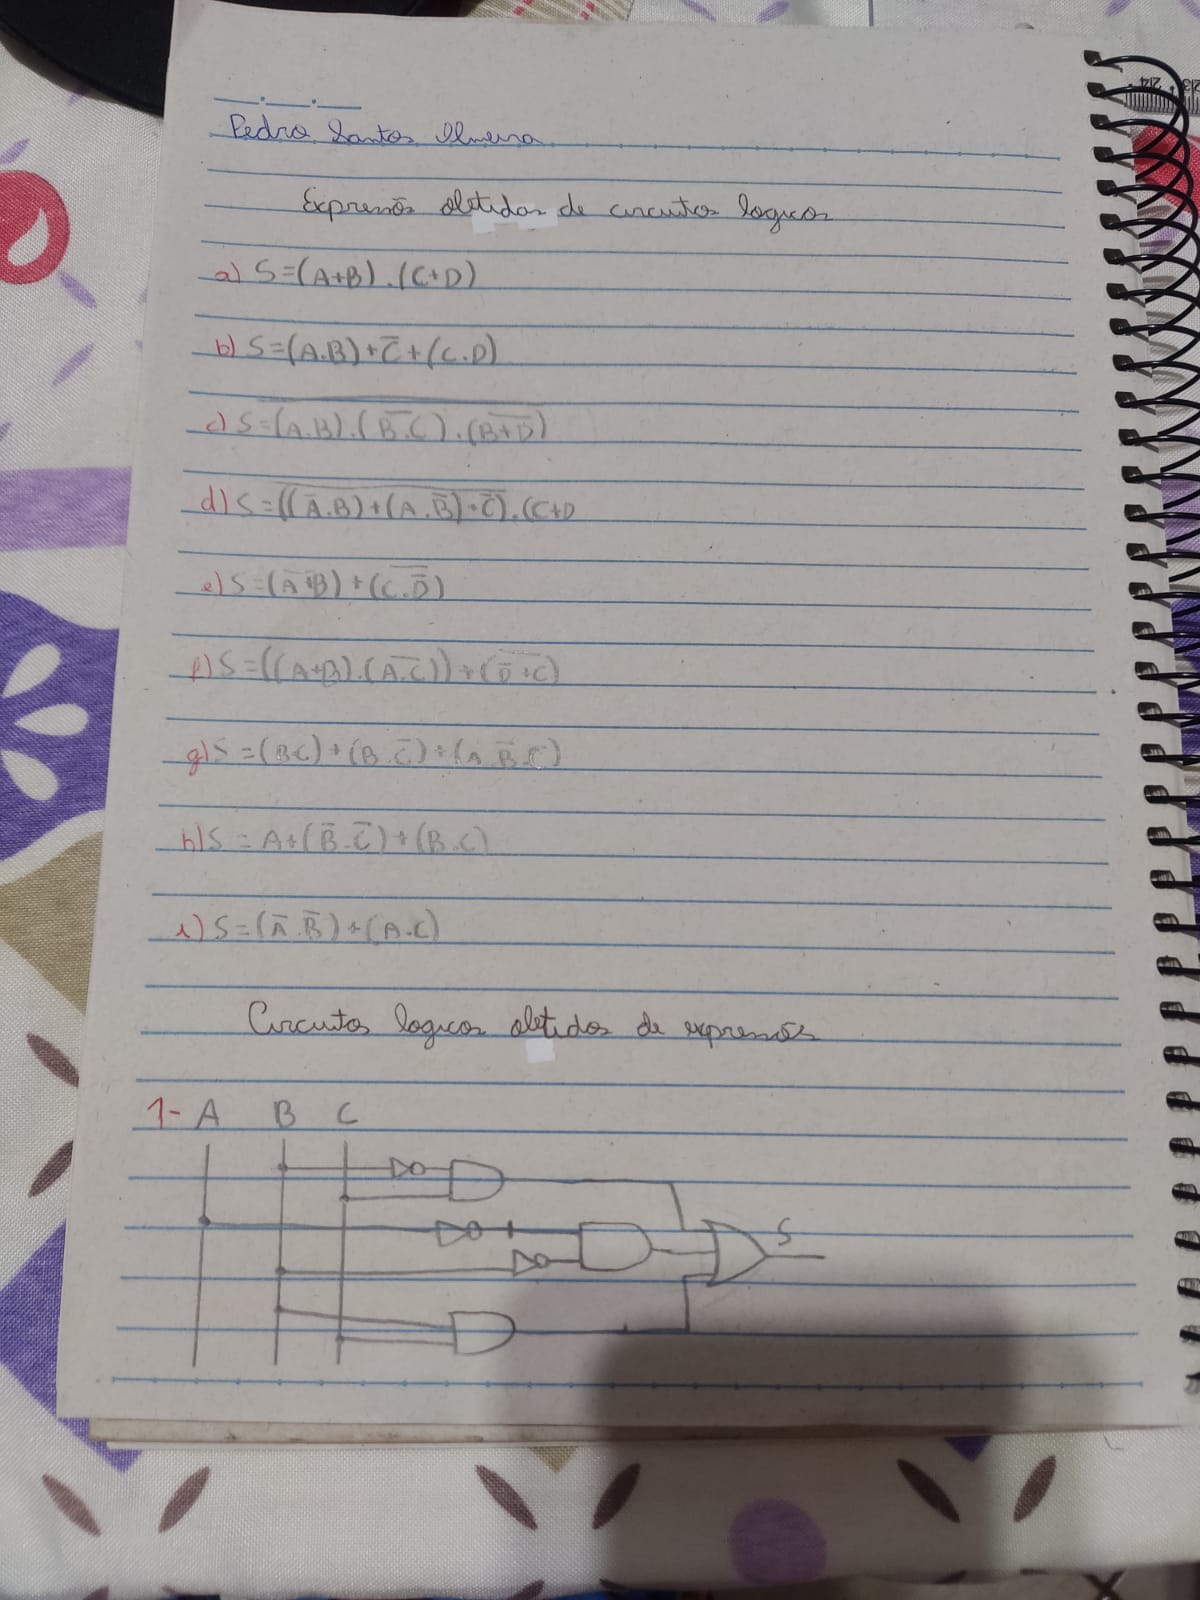 Pedro Santos
Expresõs obtidas de circuitos logicos
a) S=(A+B).(C+D)
b) S=(A.B)+C̅+(C.D)
c) S=(A.B).(B.C).(B+D)
d) S=((A̅.B)+(A.B̅)+C̅).(C+D
e) S=(A+B)+(C.D̅)
f) S=((A+B).(A.C))+(D̅+C)
g) S=(BC)+(B.C̅)+(A.B̅.C)
h) S=A+(B̅.C̅)+(B.C)
i) S=(A̅.B̅)+(A.C)
Circuitos logicos obtidos de expresõs
1- A B C
S